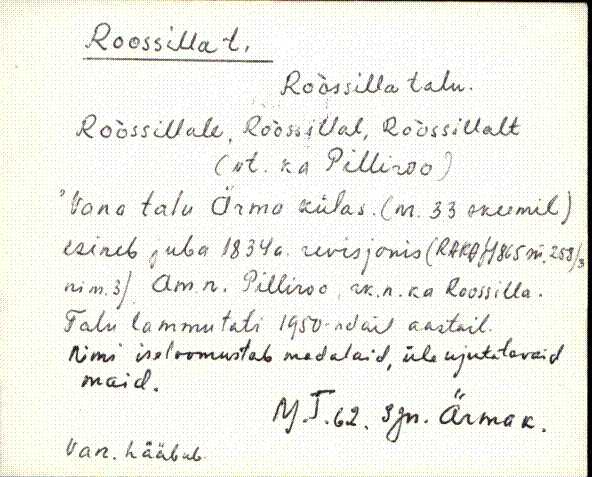 Roossilla t.
Roòssilla talu.
Roòssillale, Roòssillal, Roòssillalt
(vt. ka Pilliroo)
Vana talu Ärma külas. (m. 33 skeemil)
esineb juba 1834 a. revisjonis (RAKA f 1865 nim. 3). Am.n. Pilliroo, rk.n. ka Roossilla.
Talu lammutati 1950-ndail aastail.
Nimi iseloomustab madalaid, üleujutatavaid
maid.
M.T. 62. Sgn. Ärma k.
Van. hääbub.